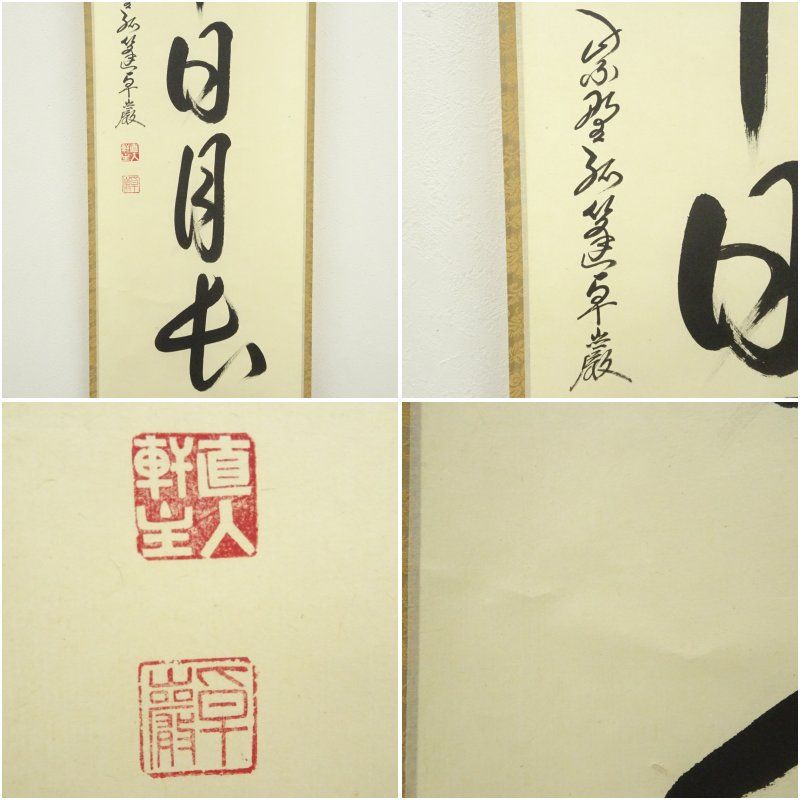 日月長
孤篷卓巖
日
紫野孤篷卓巖
直人
軒主
卓
巖